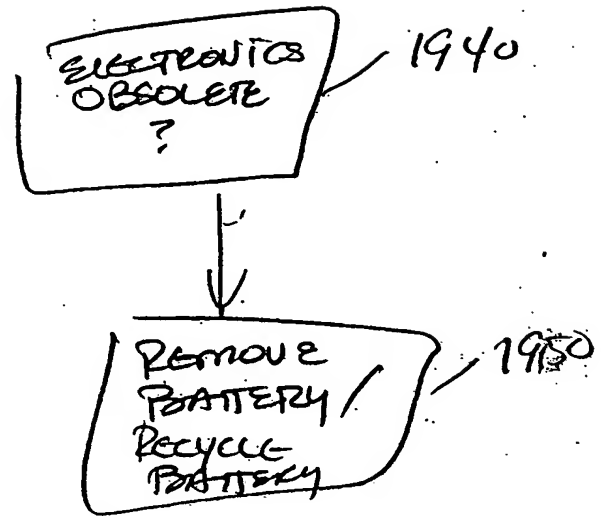 ELECTRONICS
OBSOLETE
?
1940
REMOVE
BATTERY /
RECYCLE
BATTERY
1950